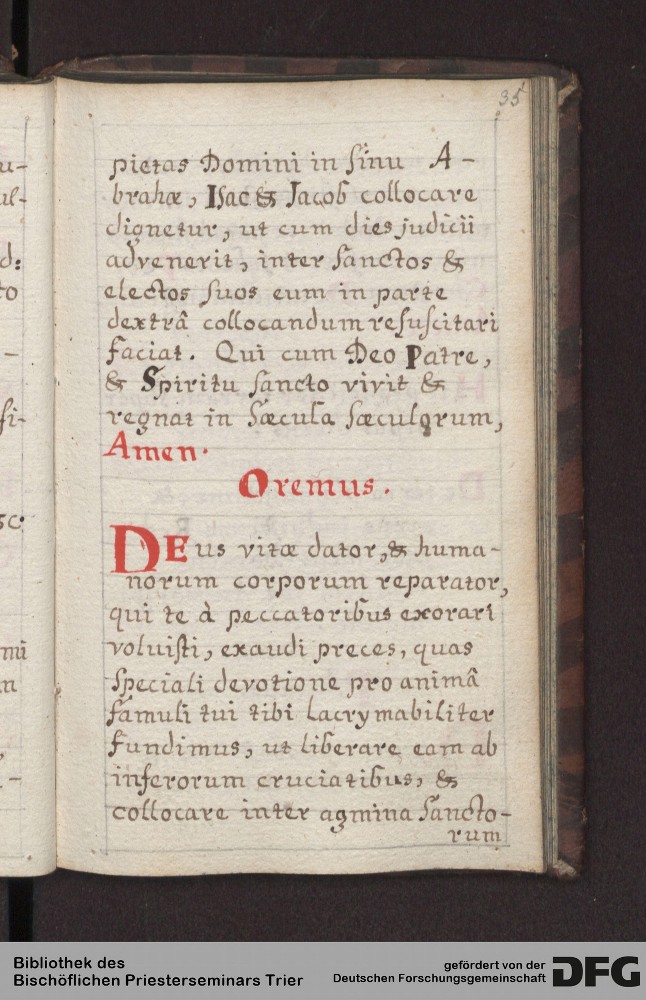 35
pietas Domini in sinu A-
brahæ, Isac & Jacob collocare
dignetur, ut cum dies judicii
advenerit, inter sanctos &
electos suos eum in parte
dextrâ collocandum resuscitari
faciat. Qui cum Deo Patre,
& Spiritu sancto vivit &
regnat in sæcula sæculorum,
Amen.
Oremus.
DEus vitæ dator, & huma-
norum corporum reparator,
qui te à peccatoribus exorari
voluisti, exaudi preces, quas
speciali devotione pro animâ
famuli tui tibi lacrymabiliter
fundimus, ut liberare eam ab
inferorum cruciatibus, &
collocare inter agmina sancto-
rum
Bibliothek des
Bischöflichen Priesterseminars Trier
gefördert von der
Deutschen Forschungsgemeinschaft
DFG